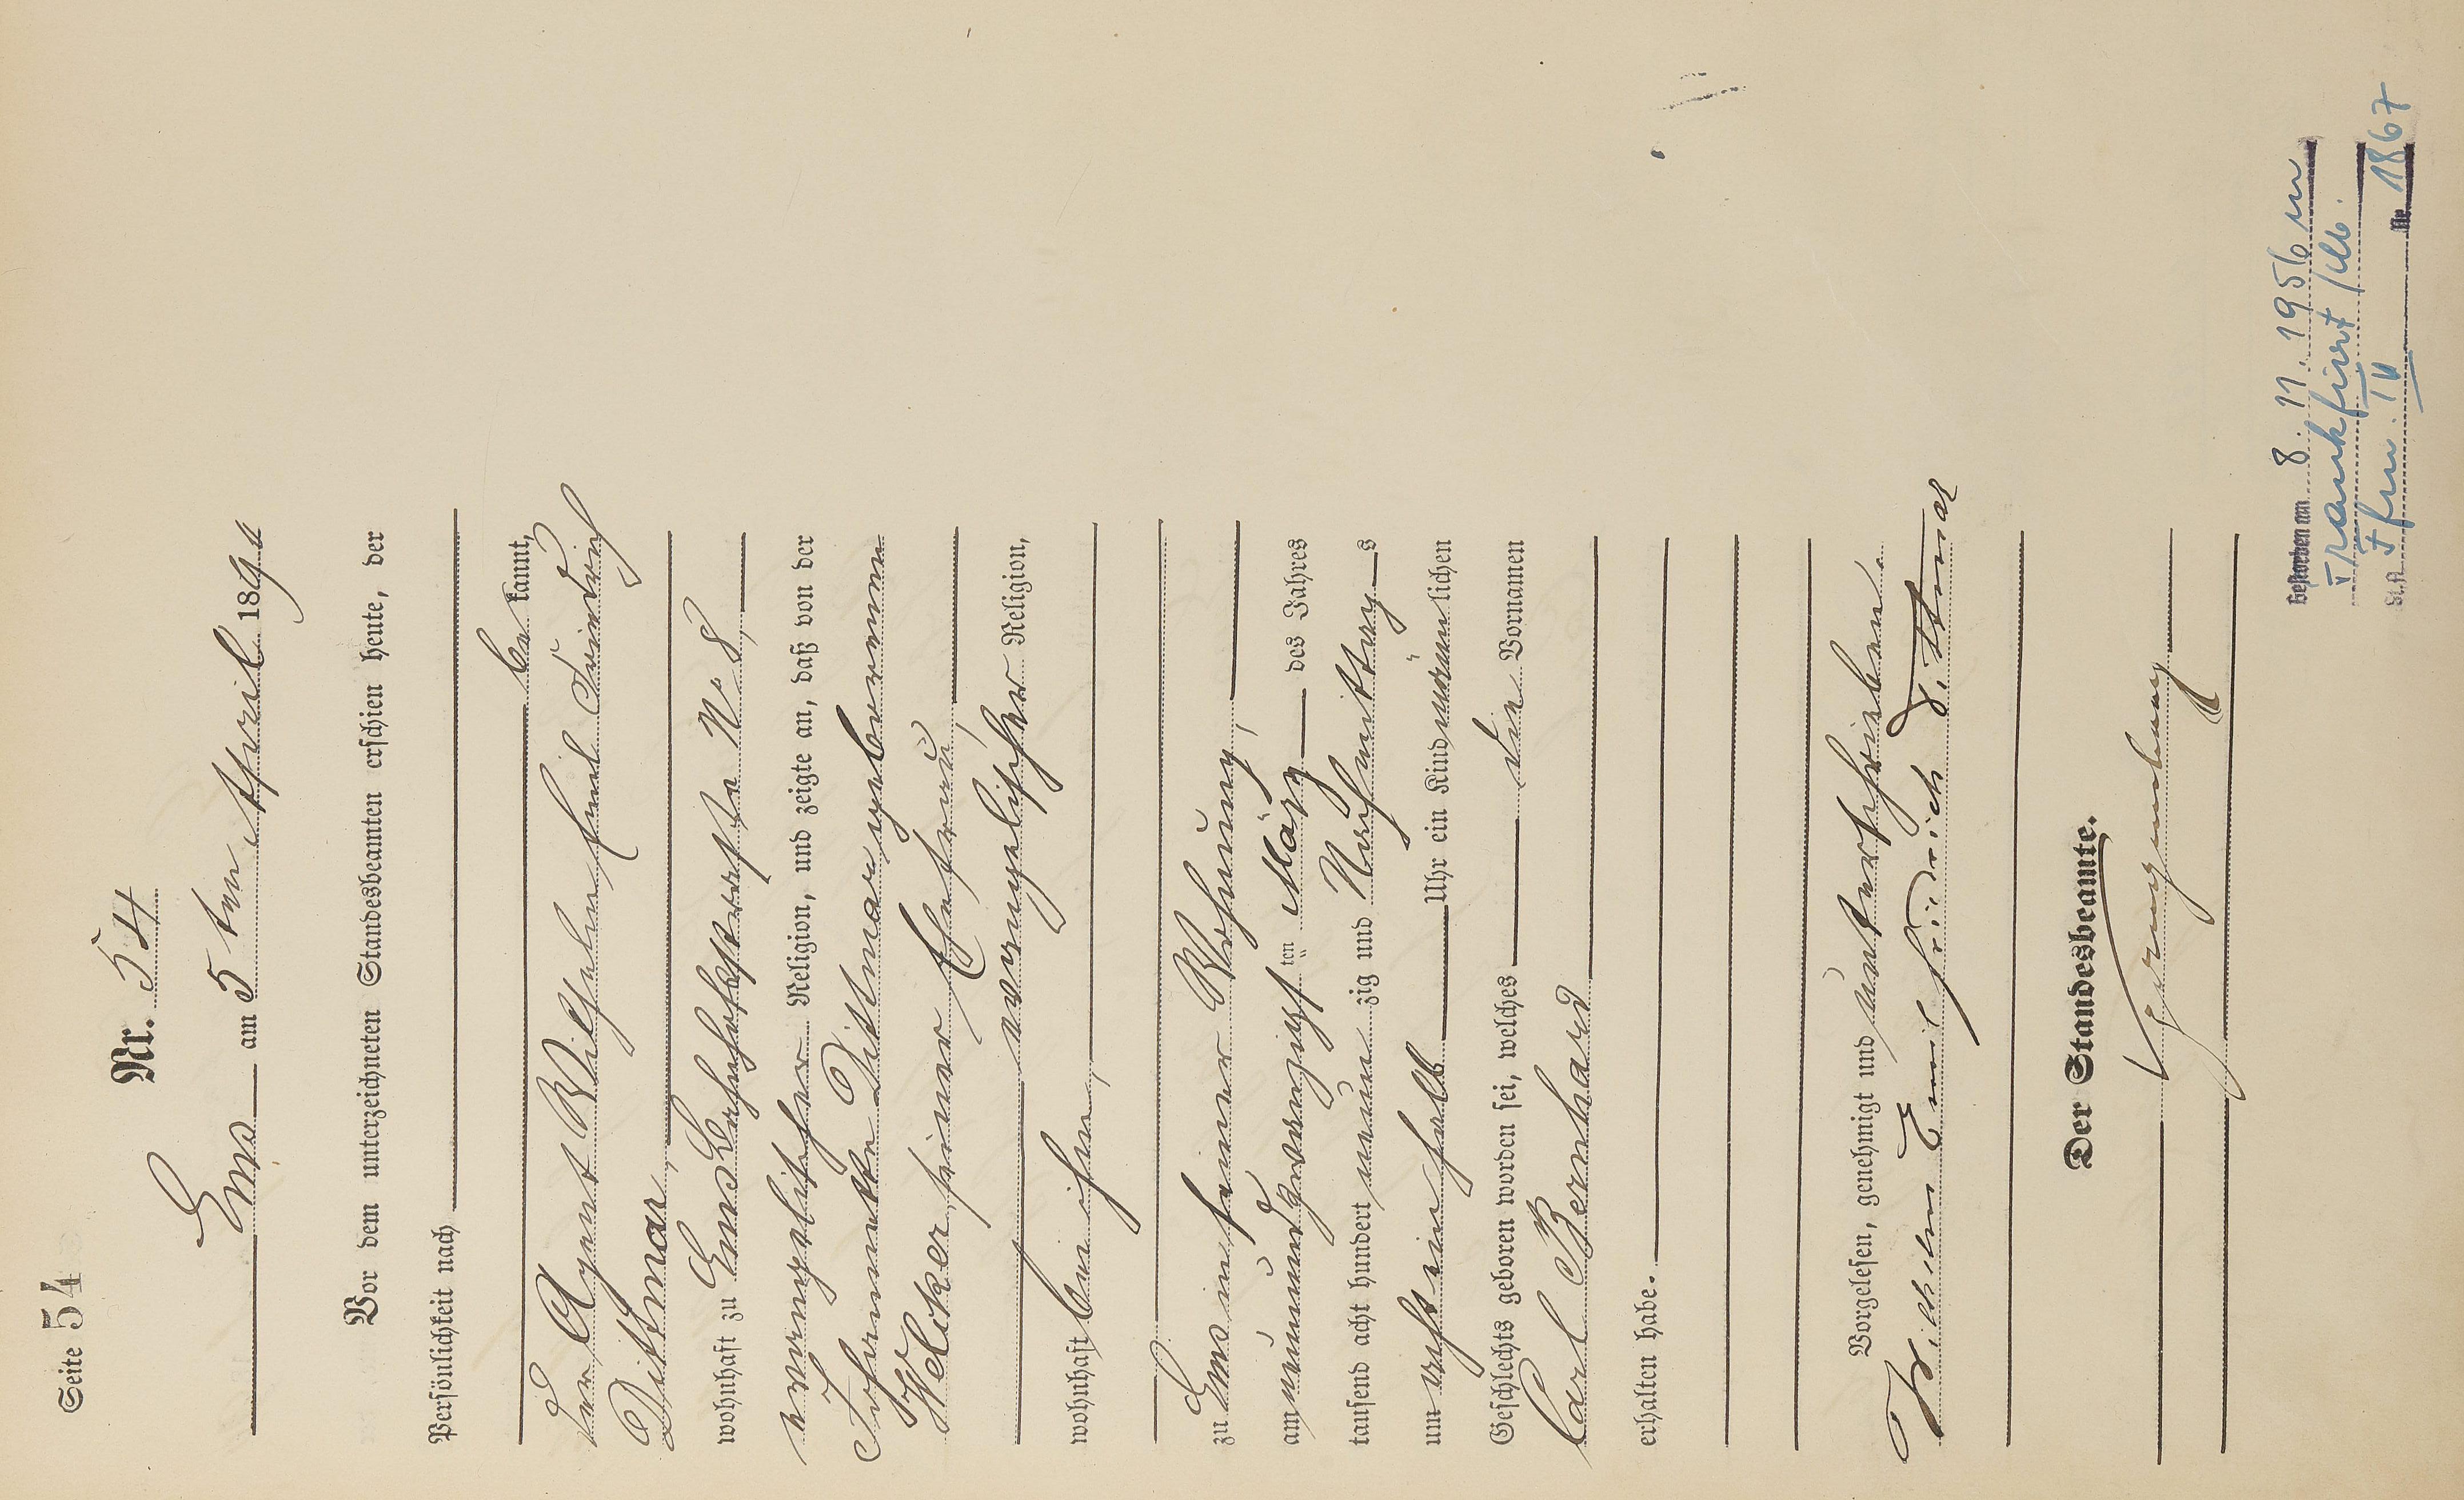 Seite 54
Nr. 54
Ems am 5ten April 1890
Vor dem unterzeichneten Standesbeamten erschien heute, der
Persönlichkeit nach
be kannt,
der Agent Wilhelm Emil Friedrich
Dittmar,
wohnhaft zu Ems Bahnhofstraße No 8,
evangelischer Religion, und zeigte an, daß von der
Dittmar geborenen
Welcker, seiner Ehefrau,
evangelischer Religion,
wohnhaft bei ihm,
zu Ems in seiner Wohnung,
am neunundzwanzigsten März des Jahres
tausend acht hundert neunzig und Nachmittags
um acht ein halb Uhr ein Kind männlichen
Geschlechts geboren worden sei, welches die Vornamen
Carl Bernhard
erhalten habe.
Vorgelesen, genehmigt und unterschrieben.
Wilhelm Emil Friedrich Dittmar
Der Standesbeamte.
Gestorben am 8.11.1956 in
Frankfurt/M.
St.A. Ffm. IV Nr. 1867